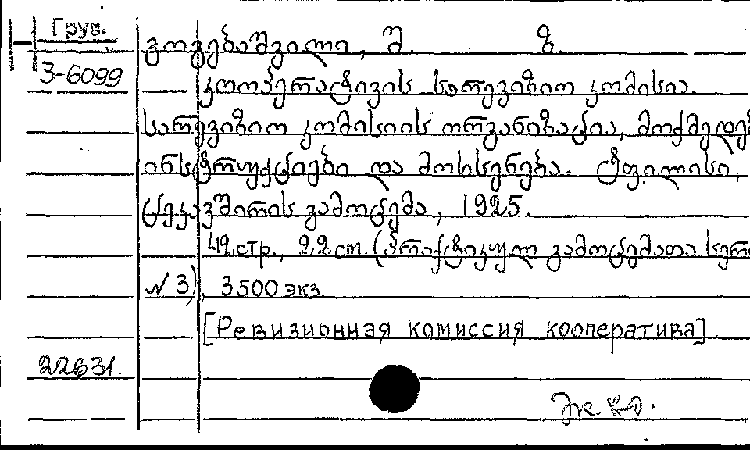 Груз.
3-6099
გოგებაშვილი, შ. ზ.
კოოპერატივის სარევიზიო კომისია.
სარევიზიო კომისიის ორგანიზაცია, მოქმედებ
ინსტრუქციები და მოხსენება. ტფილისი,
ცეკავშირის გამოცემა, 1925.
42 стр., 22 см. (პრაქტიკულ გამოცემათა სერი
№ 3), 3500 экз.
[Ревизионная комиссия кооператива]
22631.